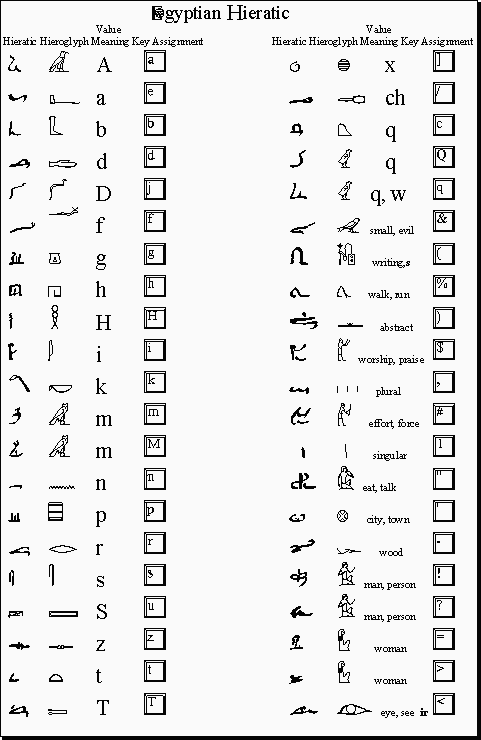 Egyptian Hieratic
Value
Hieratic Hieroglyph Meaning Key Assignment
A a
a e
b b
d d
D j
f f
g g
h h
H H
i i
k k
m m
m M
n n
p p
r r
s s
S u
z z
t t
T T
Value
Hieratic Hieroglyph Meaning Key Assignment
x ]
ch /
q c
q Q
q, w q
small, evil &
writing,s (
walk, run %
abstract )
worship, praise $
plural ,
effort, force #
singular 1
eat, talk "
city, town '
wood -
man, person !
man, person ?
woman =
woman >
eye, see ir <